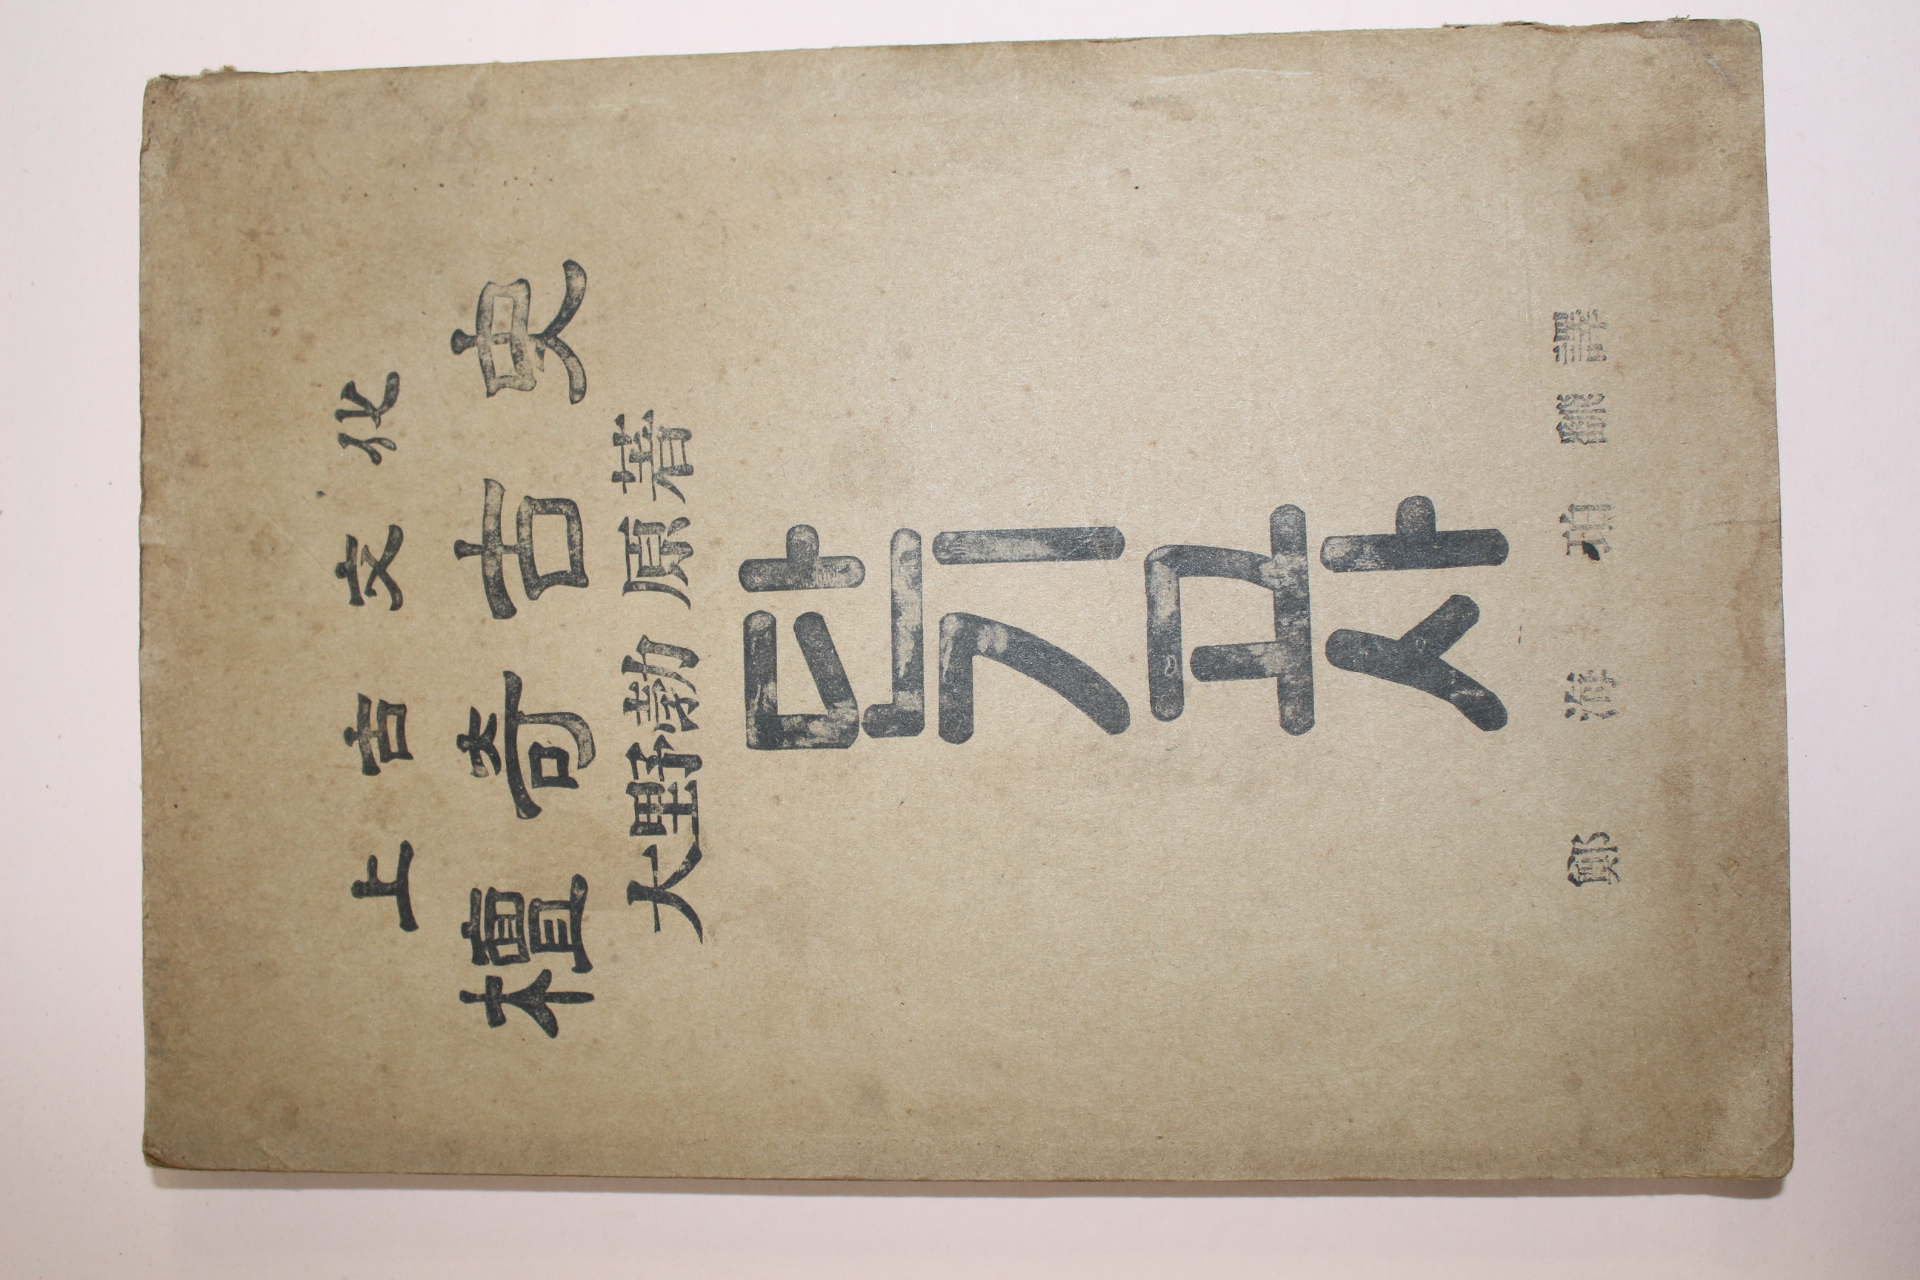 上古文化
檀奇古史
大野勃 原著
단기고사
鄭海珀 飜譯